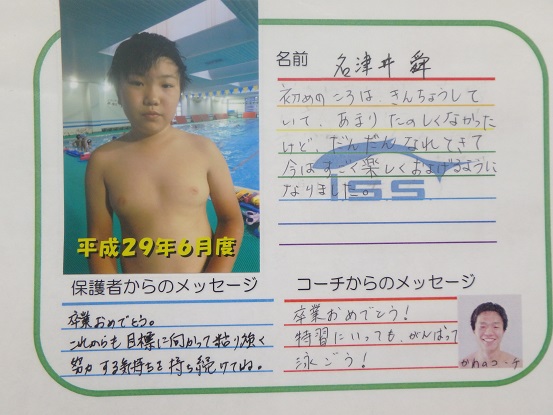 名前 名津井 舜
初めのころは、きんちょうして
いて、あまりたのしくなかった
けど、だんだんなれてきて
今はすごく楽しくおよげるように
なりました。
ISS
平成29年6月度
保護者からのメッセージ
卒業おめでとう。
これからも目標に向かって粘り強く
努力する気持ちを持ち続けてね。
コーチからのメッセージ
卒業おめでとう!
特習にいっても、がんばって
泳ごう!
コーチ